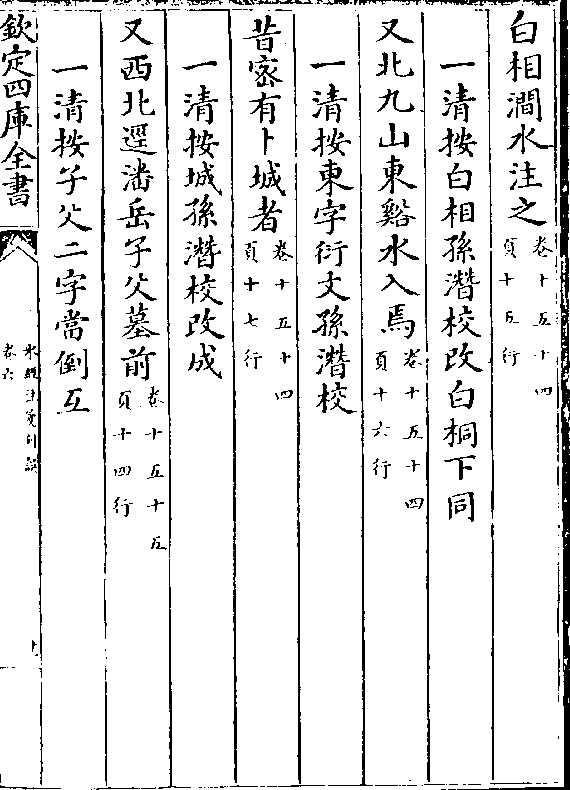 白相澗水注之卷十五十四頁十五行
一清按白相孫潛校改白桐下同
又北九山東谿水入焉卷十五十四頁十六行
一清按東字衍文孫潛校
昔密有卜城者卷十五十四頁十七行
一清按城孫潛校改成
又西北逕潘岳子父墓前卷十五十五頁十四行
一清按子父二字當倒互
欽定四庫全書
水經注箋刊誤
卷六